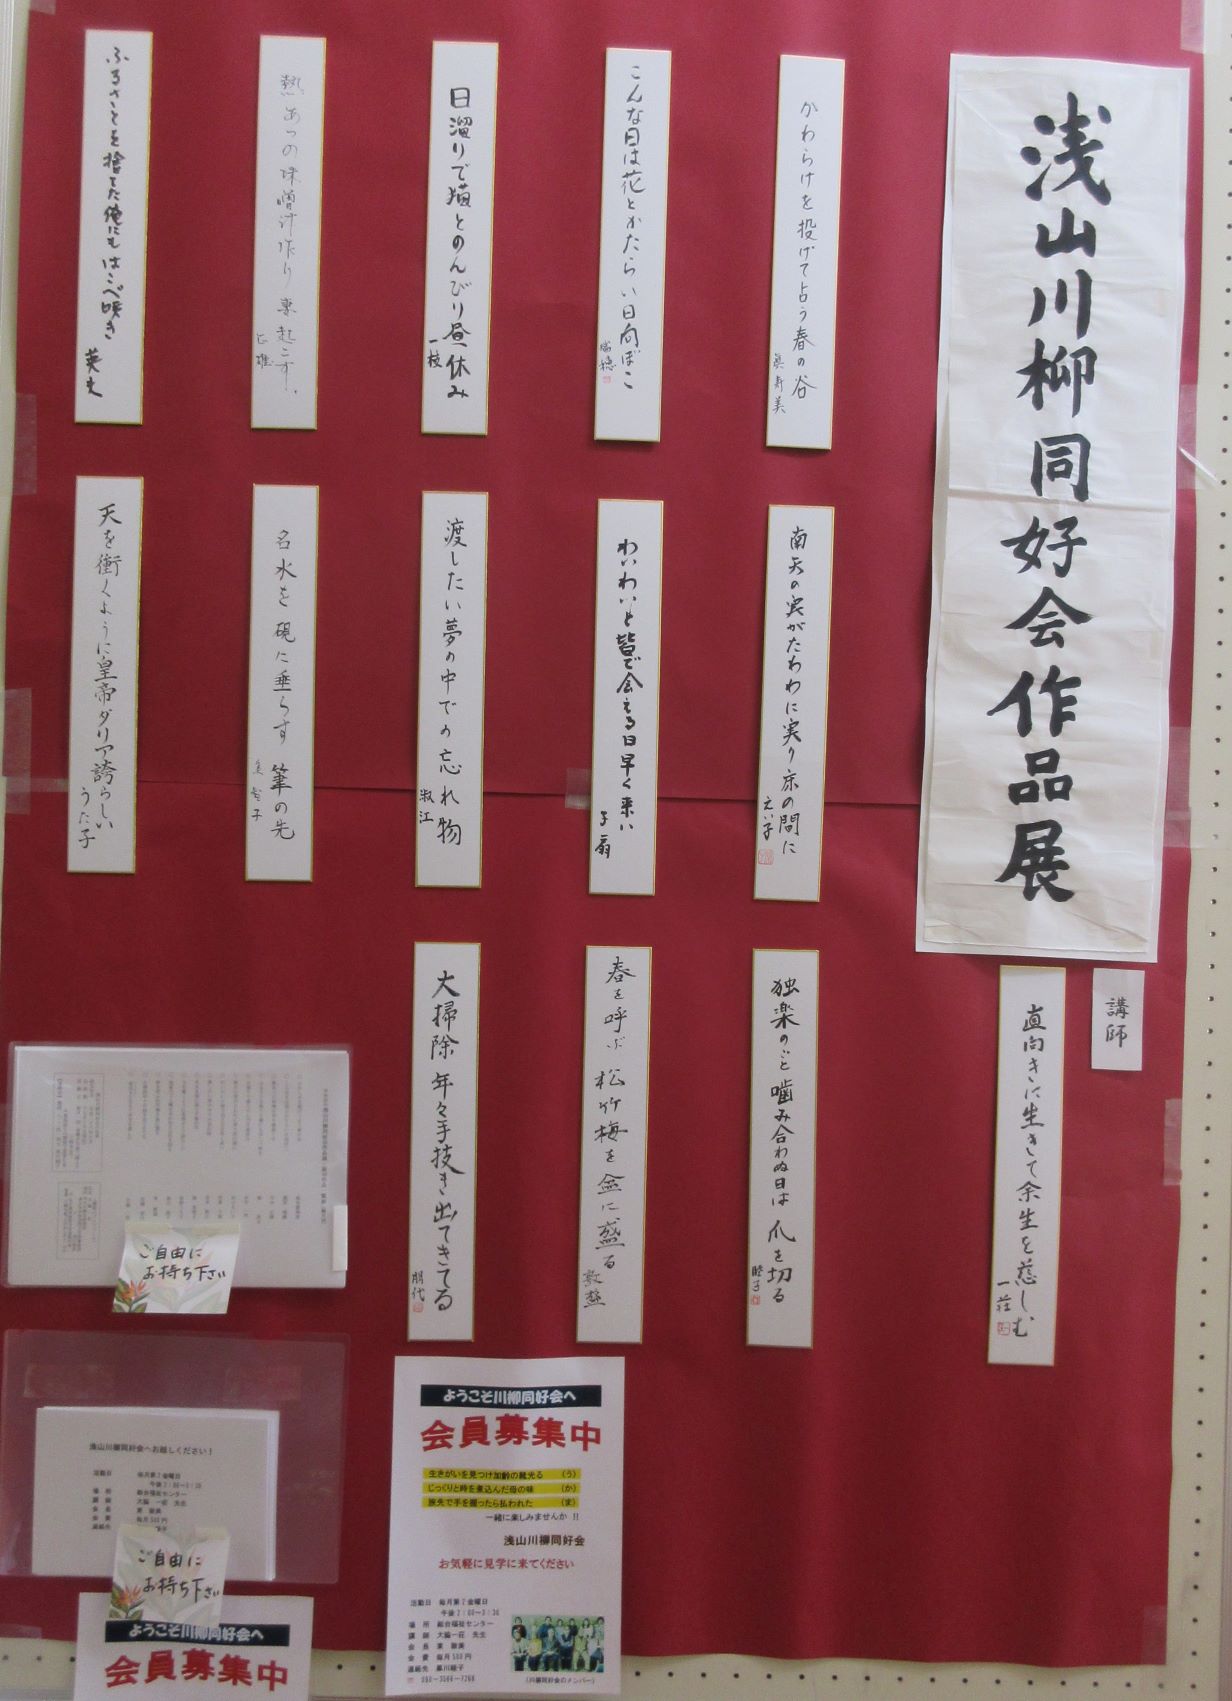 浅山川柳同好会作品展
かわらけを投げて占う春の谷
眞寿美
こんな日は花とかたらい日向ぼこ
瑞穂
日溜りで猫とのんびり昼休み
一枝
熱あつの味噌汁作り妻起こす
正雄
ふるさとを捨てた俺にもはこべ咲き
英史
南天の実がたわわに実り床の間に
えい子
わいわいと皆で会える日早く来い
子扇
渡したい夢の中での忘れ物
淑江
名水を硯に垂らす筆の先
天を衝くように皇帝ダリア誇らしい
うた子
講師
直向きに生きて余生を慈しむ
一荘
独楽のごと噛み合わぬ日は爪を切る
睦子
春を呼ぶ松竹梅を盆に盛る
大掃除年々手抜き出てきてる
朋代
ご自由に
お持ち下さい
浅山川柳同好会へお越しください！
活動日 毎月第2金曜日
午後2:00~3:30
場所 総合福祉センター
講師 大脇 一荘 先生
会費 毎月500円
ご自由に
お持ち下さい
ようこそ川柳同好会へ
会員募集中
ようこそ川柳同好会へ
会員募集中
生きがいを見つけ加齢の靴光る (う)
じっくりと時を煮込んだ母の味 (か)
旅先で手を握ったら払われた (ま)
一緒に楽しみませんか !!
浅山川柳同好会
お気軽に見学に来てください
活動日 毎月第2金曜日
午後2:00~3:30
場所 総合福祉センター
講師 大脇一荘 先生
会費 毎月500円
(川柳同好会のメンバー)